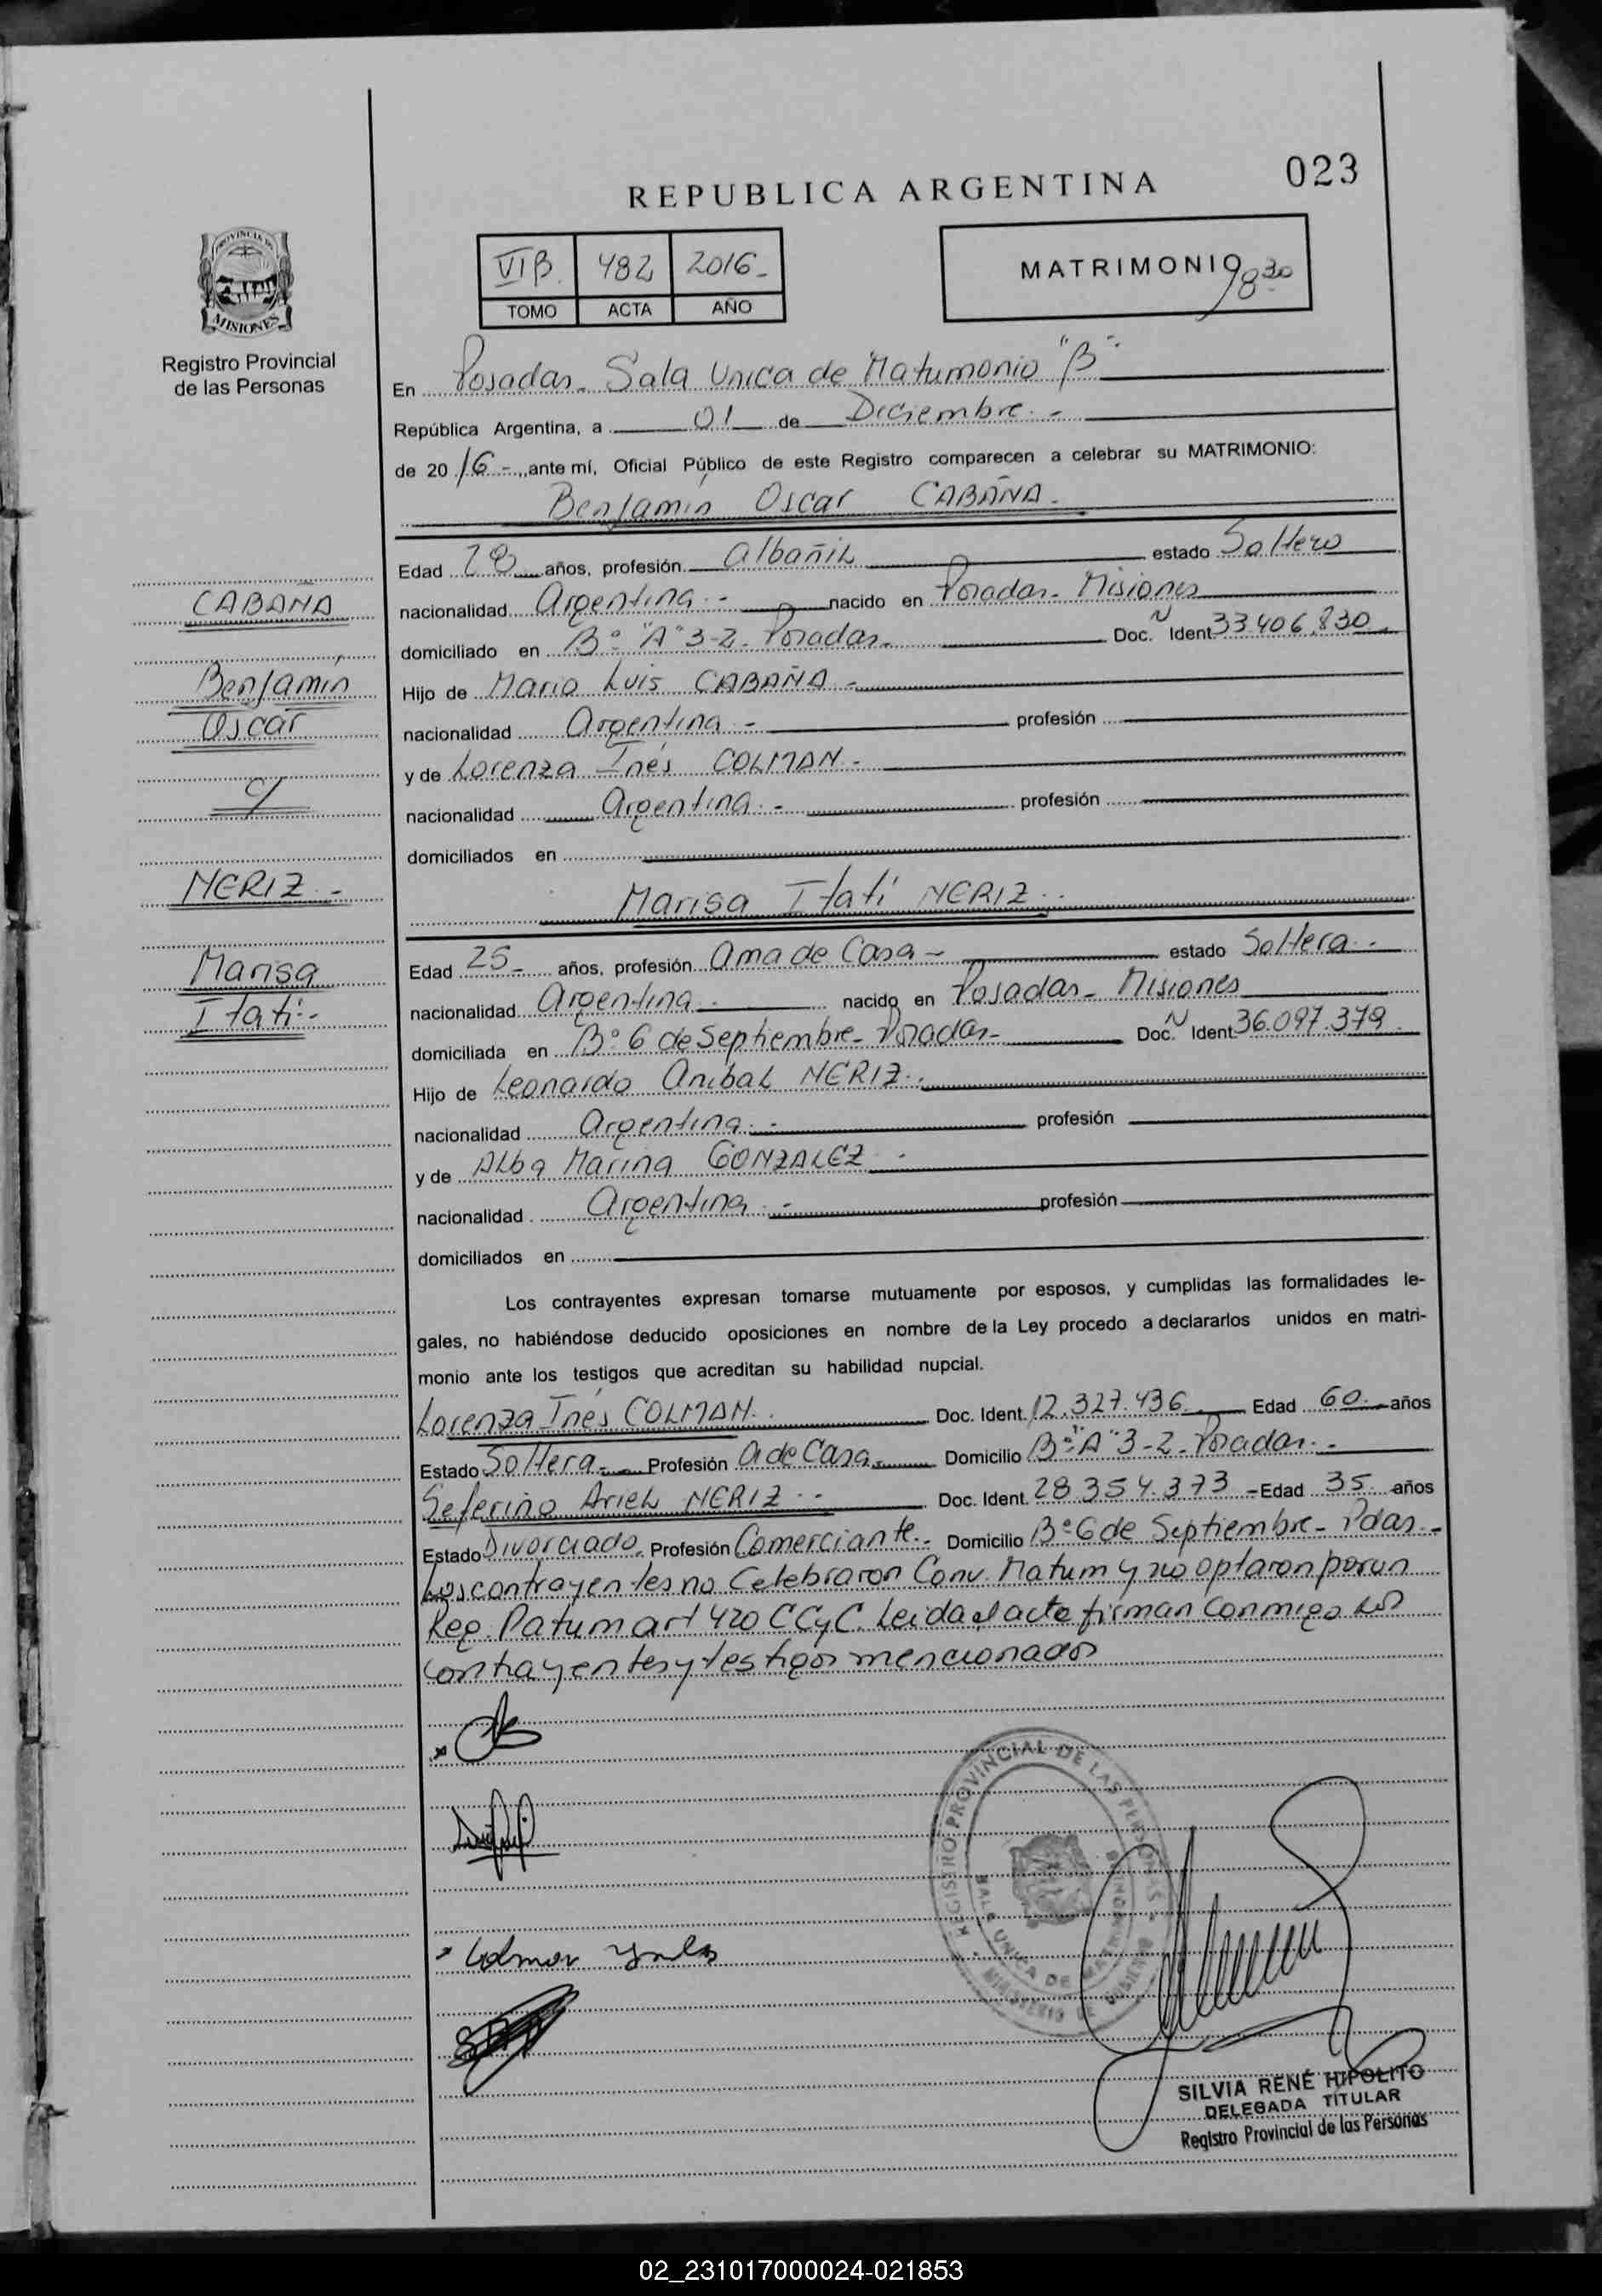 023
REPUBLICA ARGENTINA
VIB 482 2016-
TOMO ACTA AÑO
MATRIMONIO
830
PROVINCIA DE
MISIONES
Registro Provincial
de las Personas
En Posadas- Sala Unica de Matrimonio "B"-
República Argentina, a 01 de Diciembre.-
de 2016-, ante mí, Oficial Público de este Registro comparecen a celebrar su MATRIMONIO:
Benjamín Oscar CABAÑA-
Edad 28 años, profesión Albañil estado Soltero
CABAÑA
nacionalidad Argentina.- nacido en Posadas- Misiones
domiciliado en B° "A" 3-2- Posadas- Doc. N Ident 33.406.830.
Benjamín
Hijo de Mario Luis CABAÑA-
Oscar
nacionalidad Argentina- profesión
y de Lorenza Inés COLMAN-
c/
nacionalidad Argentina.- profesión
domiciliados en
NERIZ-
Marisa Itatí NERIZ.-
Edad 25- años, profesión Ama de Casa- estado Soltera.-
Marisa
nacionalidad Argentina. nacido en Posadas- Misiones
Itatí.-
domiciliada en B° 6 de Septiembre- Posadas- Doc. N Ident 36.097.379.
Hijo de Leonardo Anibal NERIZ.-
nacionalidad Argentina.- profesión
y de Alba Marina GONZALEZ.-
nacionalidad Argentina.- profesión
domiciliados en
Los contrayentes expresan tomarse mutuamente por esposos, y cumplidas las formalidades le-
gales, no habiéndose deducido oposiciones en nombre de la Ley procedo a declararlos unidos en matri-
monio ante los testigos que acreditan su habilidad nupcial.
Lorenza Inés COLMAN.- Doc. Ident. 12.327.436 Edad 60 años
Estado Soltera- Profesión A de Casa Domicilio B° "A" 3-2- Posadas.-
Seferino Ariel NERIZ.- Doc. Ident. 28.354.373 - Edad 35 años
Estado Divorciado. Profesión Comerciante.- Domicilio B° 6 de Septiembre- Pdas.-
Los contrayentes no Celebraron Conv. Matrim y no optaron por un
Reg. Patrim art 420 CCyC. Leida el acta firman conmigo los
contrayentes y testigos mencionados
REGISTRO PROVINCIAL DE LAS PERSONAS
SALA UNICA DE MATRIMONIO B
MINISTERIO DE GOBIERNO
SILVIA RENÉ HIPOLITO
DELEGADA TITULAR
Registro Provincial de las Personas
02_231017000024-021853